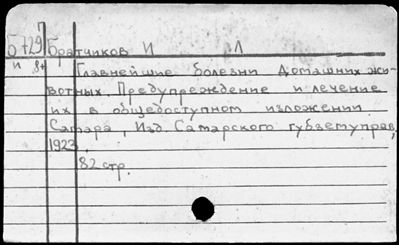 Б 729 Братчиков И Л
и 8+
Главнейшие болезни домашних жи-
вотных. Предупреждение и лечение
их в общедоступном изложении
Самара, Изд. Самарского губземуправ,
1923.
82 стр.